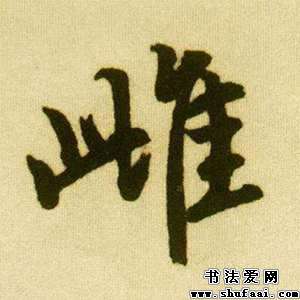 雌
书法爱网
www.shufaai.com